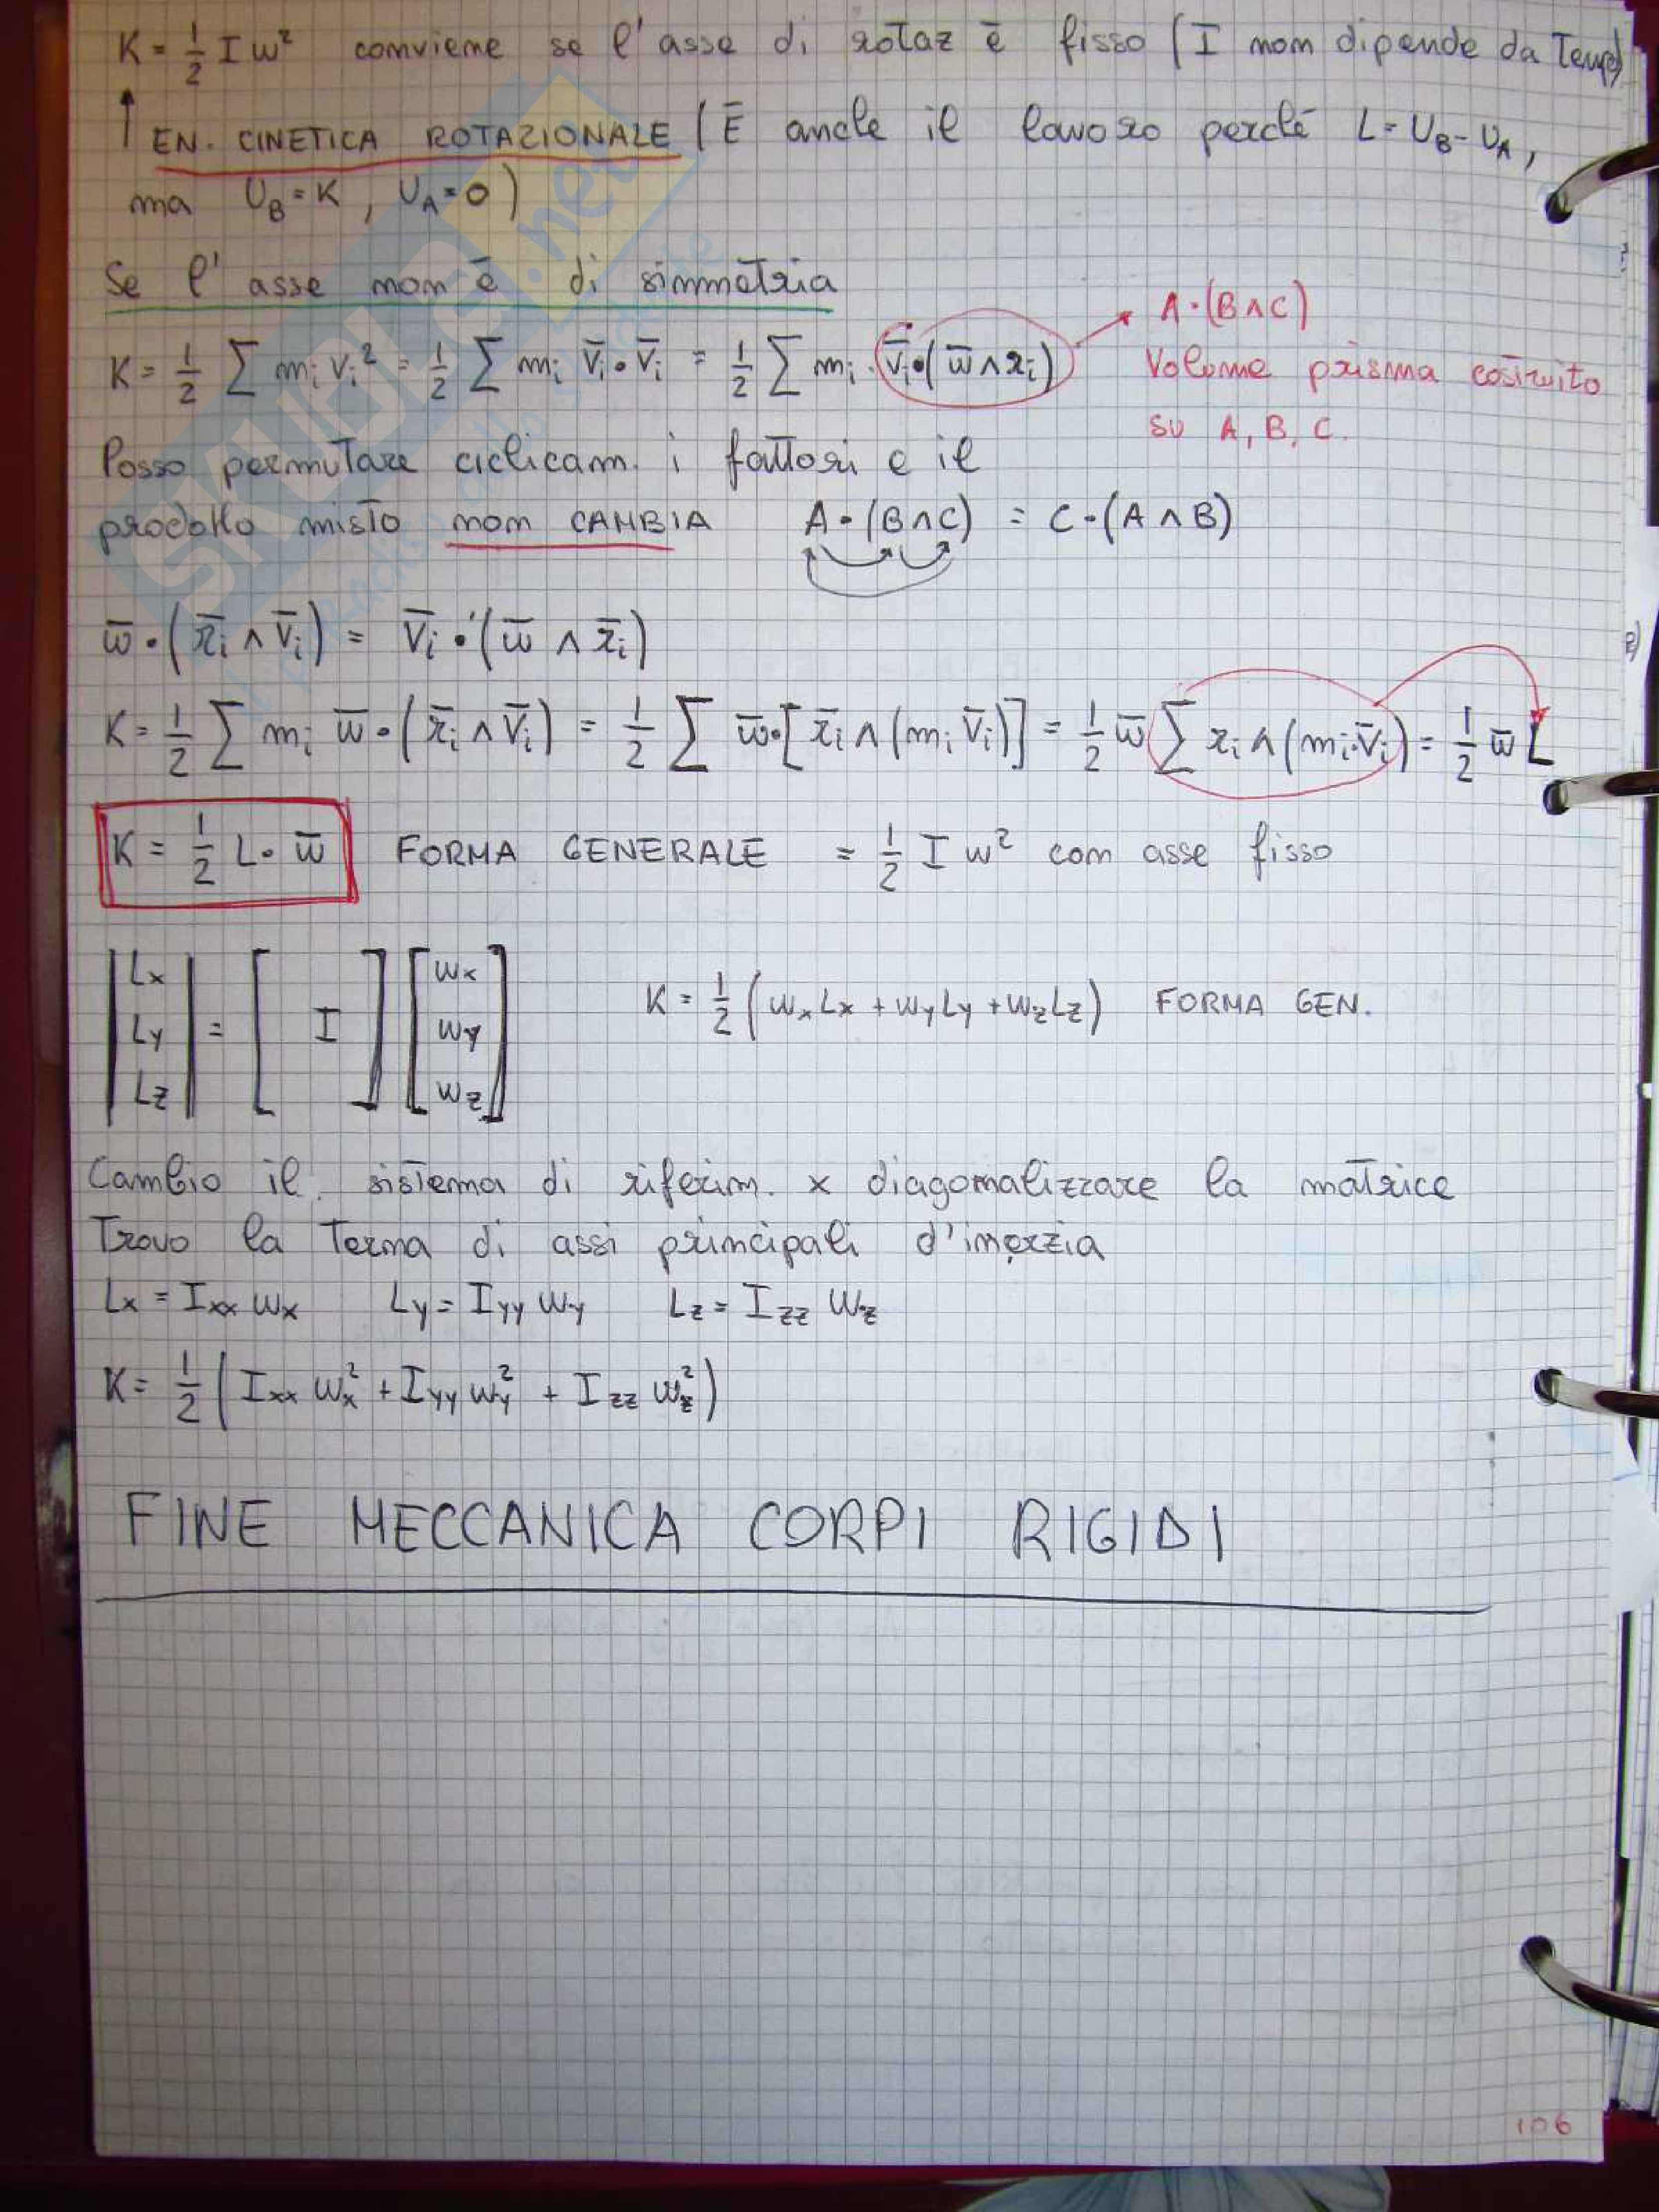 K = 1/2 I w² conviene se l'asse di rotaz è fisso (I non dipende da Tempo)
↑ EN. CINETICA ROTAZIONALE (È anche il lavoro perché L = U_B - U_A,
ma U_B = K, U_A = 0)
Se l'asse non è di simmetria
K = 1/2 Σ m_i v_i² = 1/2 Σ m_i v̄_i • v̄_i = 1/2 Σ m_i · v̄_i • (w̄ ∧ r_i)
A · (B ∧ C)
Volume prisma costruito
su A, B, C.
Posso permutare ciclicam. i fattori e il
prodotto misto non CAMBIA A · (B ∧ C) = C · (A ∧ B)
w̄ • (r̄_i ∧ v̄_i) = v̄_i • (w̄ ∧ r̄_i)
K = 1/2 Σ m_i w̄ • (r̄_i ∧ v̄_i) = 1/2 Σ w̄ • [r̄_i ∧ (m_i v̄_i)] = 1/2 w̄ Σ r_i ∧ (m_i · v̄_i) = 1/2 w̄ L
K = 1/2 L · w̄ FORMA GENERALE = 1/2 I w² con asse fisso
|Lx| = [ I ] [wx]
|Ly| [wy] K = 1/2 (wx Lx + wy Ly + wz Lz) FORMA GEN.
|Lz| [wz]
Cambio il sistema di riferim. x diagonalizzare la matrice
Trovo la Terna di assi principali d'inerzia
Lx = Ixx wx Ly = Iyy wy Lz = Izz wz
K = 1/2 (Ixx wx² + Iyy wy² + Izz wz²)
FINE MECCANICA CORPI RIGIDI
106
SKUOLA.net